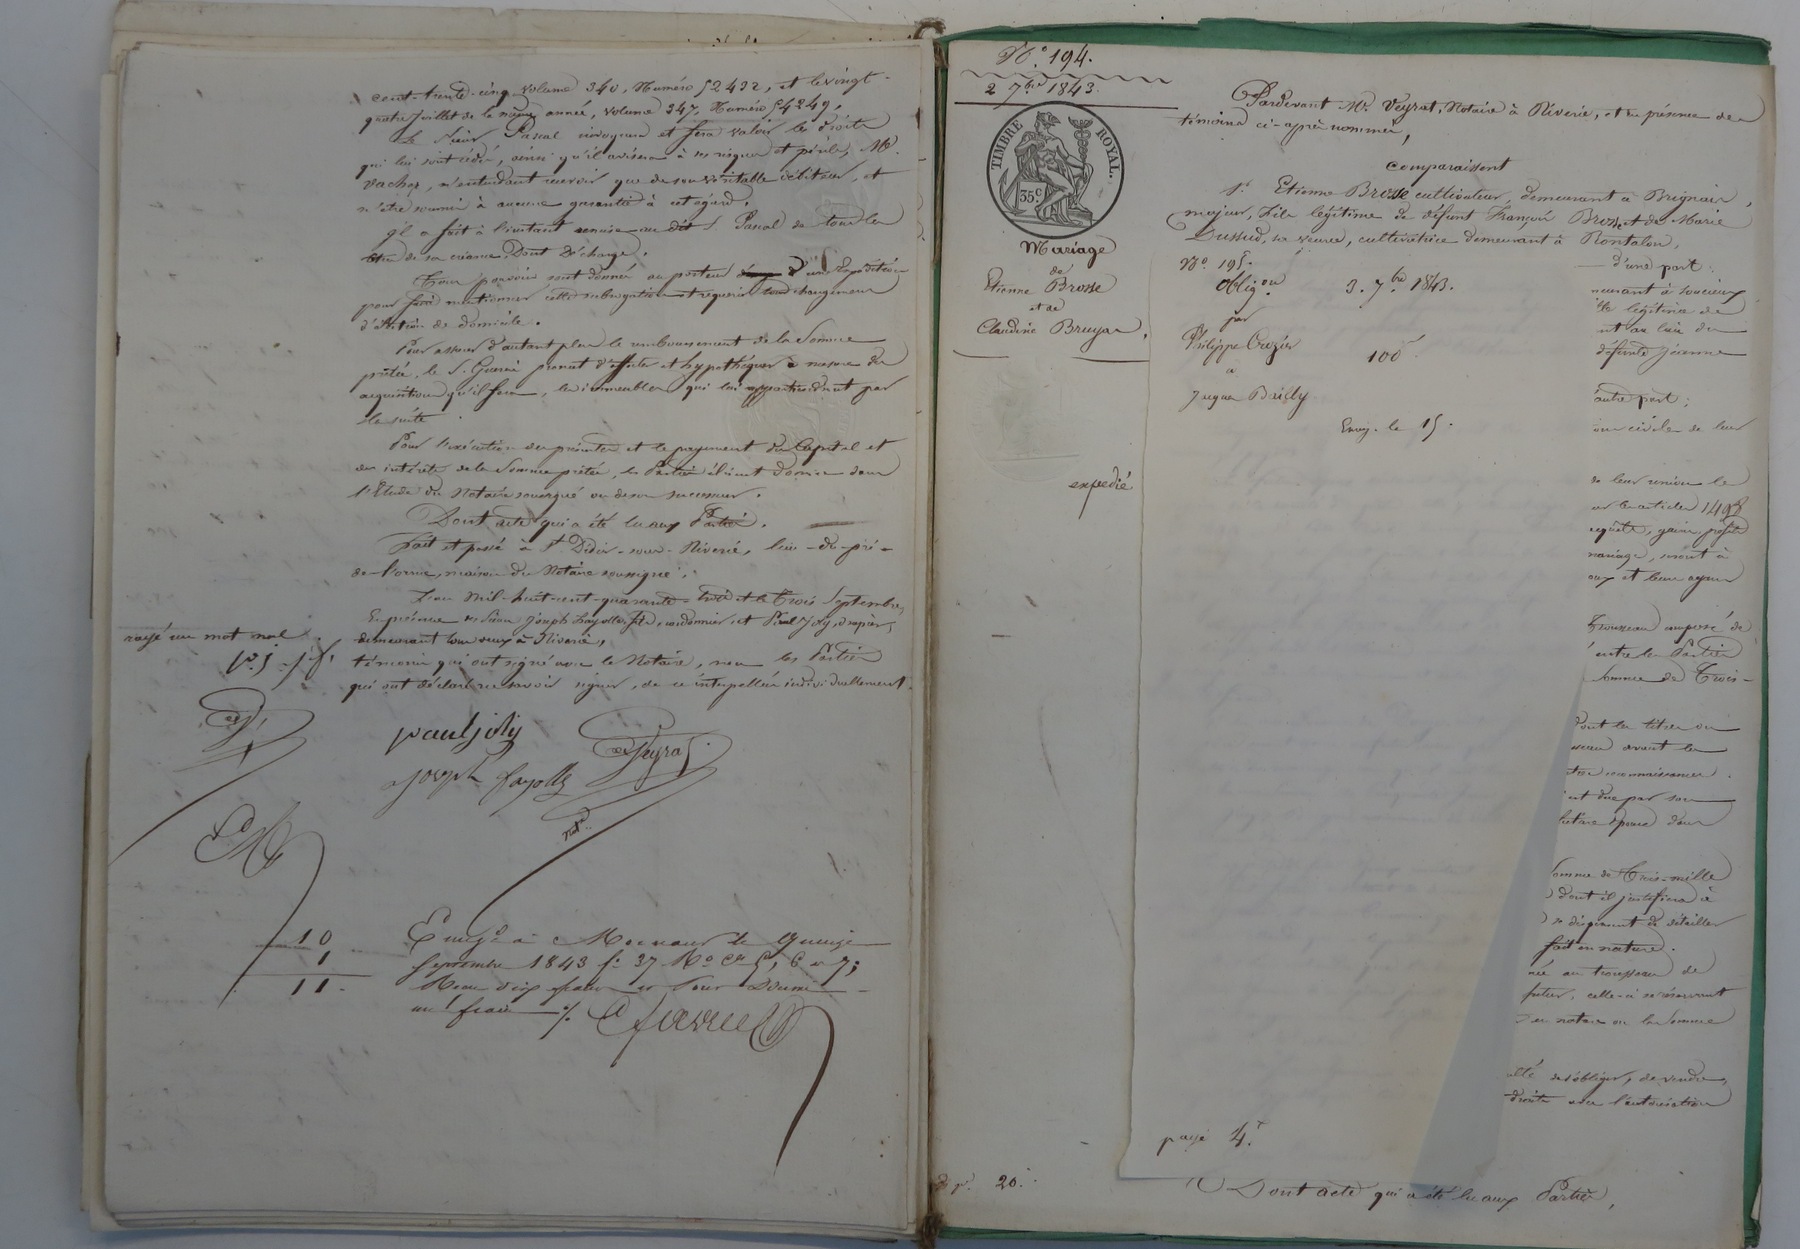 cent-trente-cinq volume 340, Numéro 52432, et le vingt-
quatre Juillet de la même année, volume 347, Numéro 54249,
Le Sieur Pascal exercera et fera valoir les droits
qui lui sont cédés, ainsi qu'il avisera à ses risques et périls, Mr.
Vachez, n'entendant recevoir que de son véritable débiteur, et
n'être soumis à aucune garantie à cet égard.
Il a fait à l'instant remise au dit S. Pascal de tous les
titres de sa créance Dont Décharge.
Tous pouvoirs sont donnés au porteur d'une Expédition
pour faire mentionner cette subrogation et requérir tout changement
d'élection de domicile.
Pour assurer d'autant plus le remboursement de la Somme
prêtée, le S. promet d'affecter et hypothéquer à mesure des
acquisitions qu'il fera, les immeubles qui lui appartiendront par
la suite
Pour l'exécution des présentes et le payement du Capital et
des intérêts de la Somme prêtée, les Parties élisent domicile dans
l'Etude du Notaire soussigné ou de son successeur.
Dont acte qui a été lu aux Parties.
Fait et passé à St. Didier-sous-Riverie, lieu-du-pré-
de-l'orme, maison du Notaire soussigné,
L'an Mil-huit-cent-quarante-trois et le Trois Septembre,
En présence de Sieurs Joseph Fayolle fils, cordonnier, et Paul Joly, drapier,
demeurant tous deux à Riverie,
témoins qui ont signé avec le Notaire, non les Parties
qui ont déclaré ne savoir signer, de ce interpellées individuellement.
rayé un mot nul.
paul joly
Veyrat
joseph fayolle
not.
10
1
11-
Enreg. à Mornant le quinze
septembre 1843 f. 37 R. Ces 5, 6 et 7;
Reçu dix francs et pour Décime
un franc %.
N.° 194.
2 7bre 1843.
TIMBRE ROYAL.
35c
Mariage
de
Etienne Brosse
et de
Claudine Bruyas,
expédié
20.
Pardevant Me. Veyrat, Notaire à Riverie, et en présence des
témoins ci-après nommés,
comparaissent
Sr. Etienne Brosse cultivateur, demeurant à Brignais,
majeur, fils légitime de défunt François Brosse et de Marie
Dussud, sa veuve, cultivatrice demeurant à Rontalon,
d'une part:
N.° 195.
Oblig.on 3. 7.bre 1843.
par
Philippe Crozier 100
à
Jacques Bailly.
Enreg. le 15.
payé 4.f
meurant à Soucieux
fille légitime de
et au lieu du
défunte Jeanne
autre part;
ions civiles de leur
de leur union le
les articles 1498
acquêts, gains, profits
mariage, seront à
eux et leurs ayans
trousseau composé de
entre les Parties
somme de Trois-
dont les titres ou
avant les
connaissances.
est due par son
future épouse dans
somme de Trois-mille
dont il justifiera à
se dispensent de détailler
fait en nature.
au trousseau de
futur, celle-ci se réservant
en nature ou la Somme
s'obliger, de vendre,
droits avec l'autorisation
Dont acte qui a été lu aux Parties,